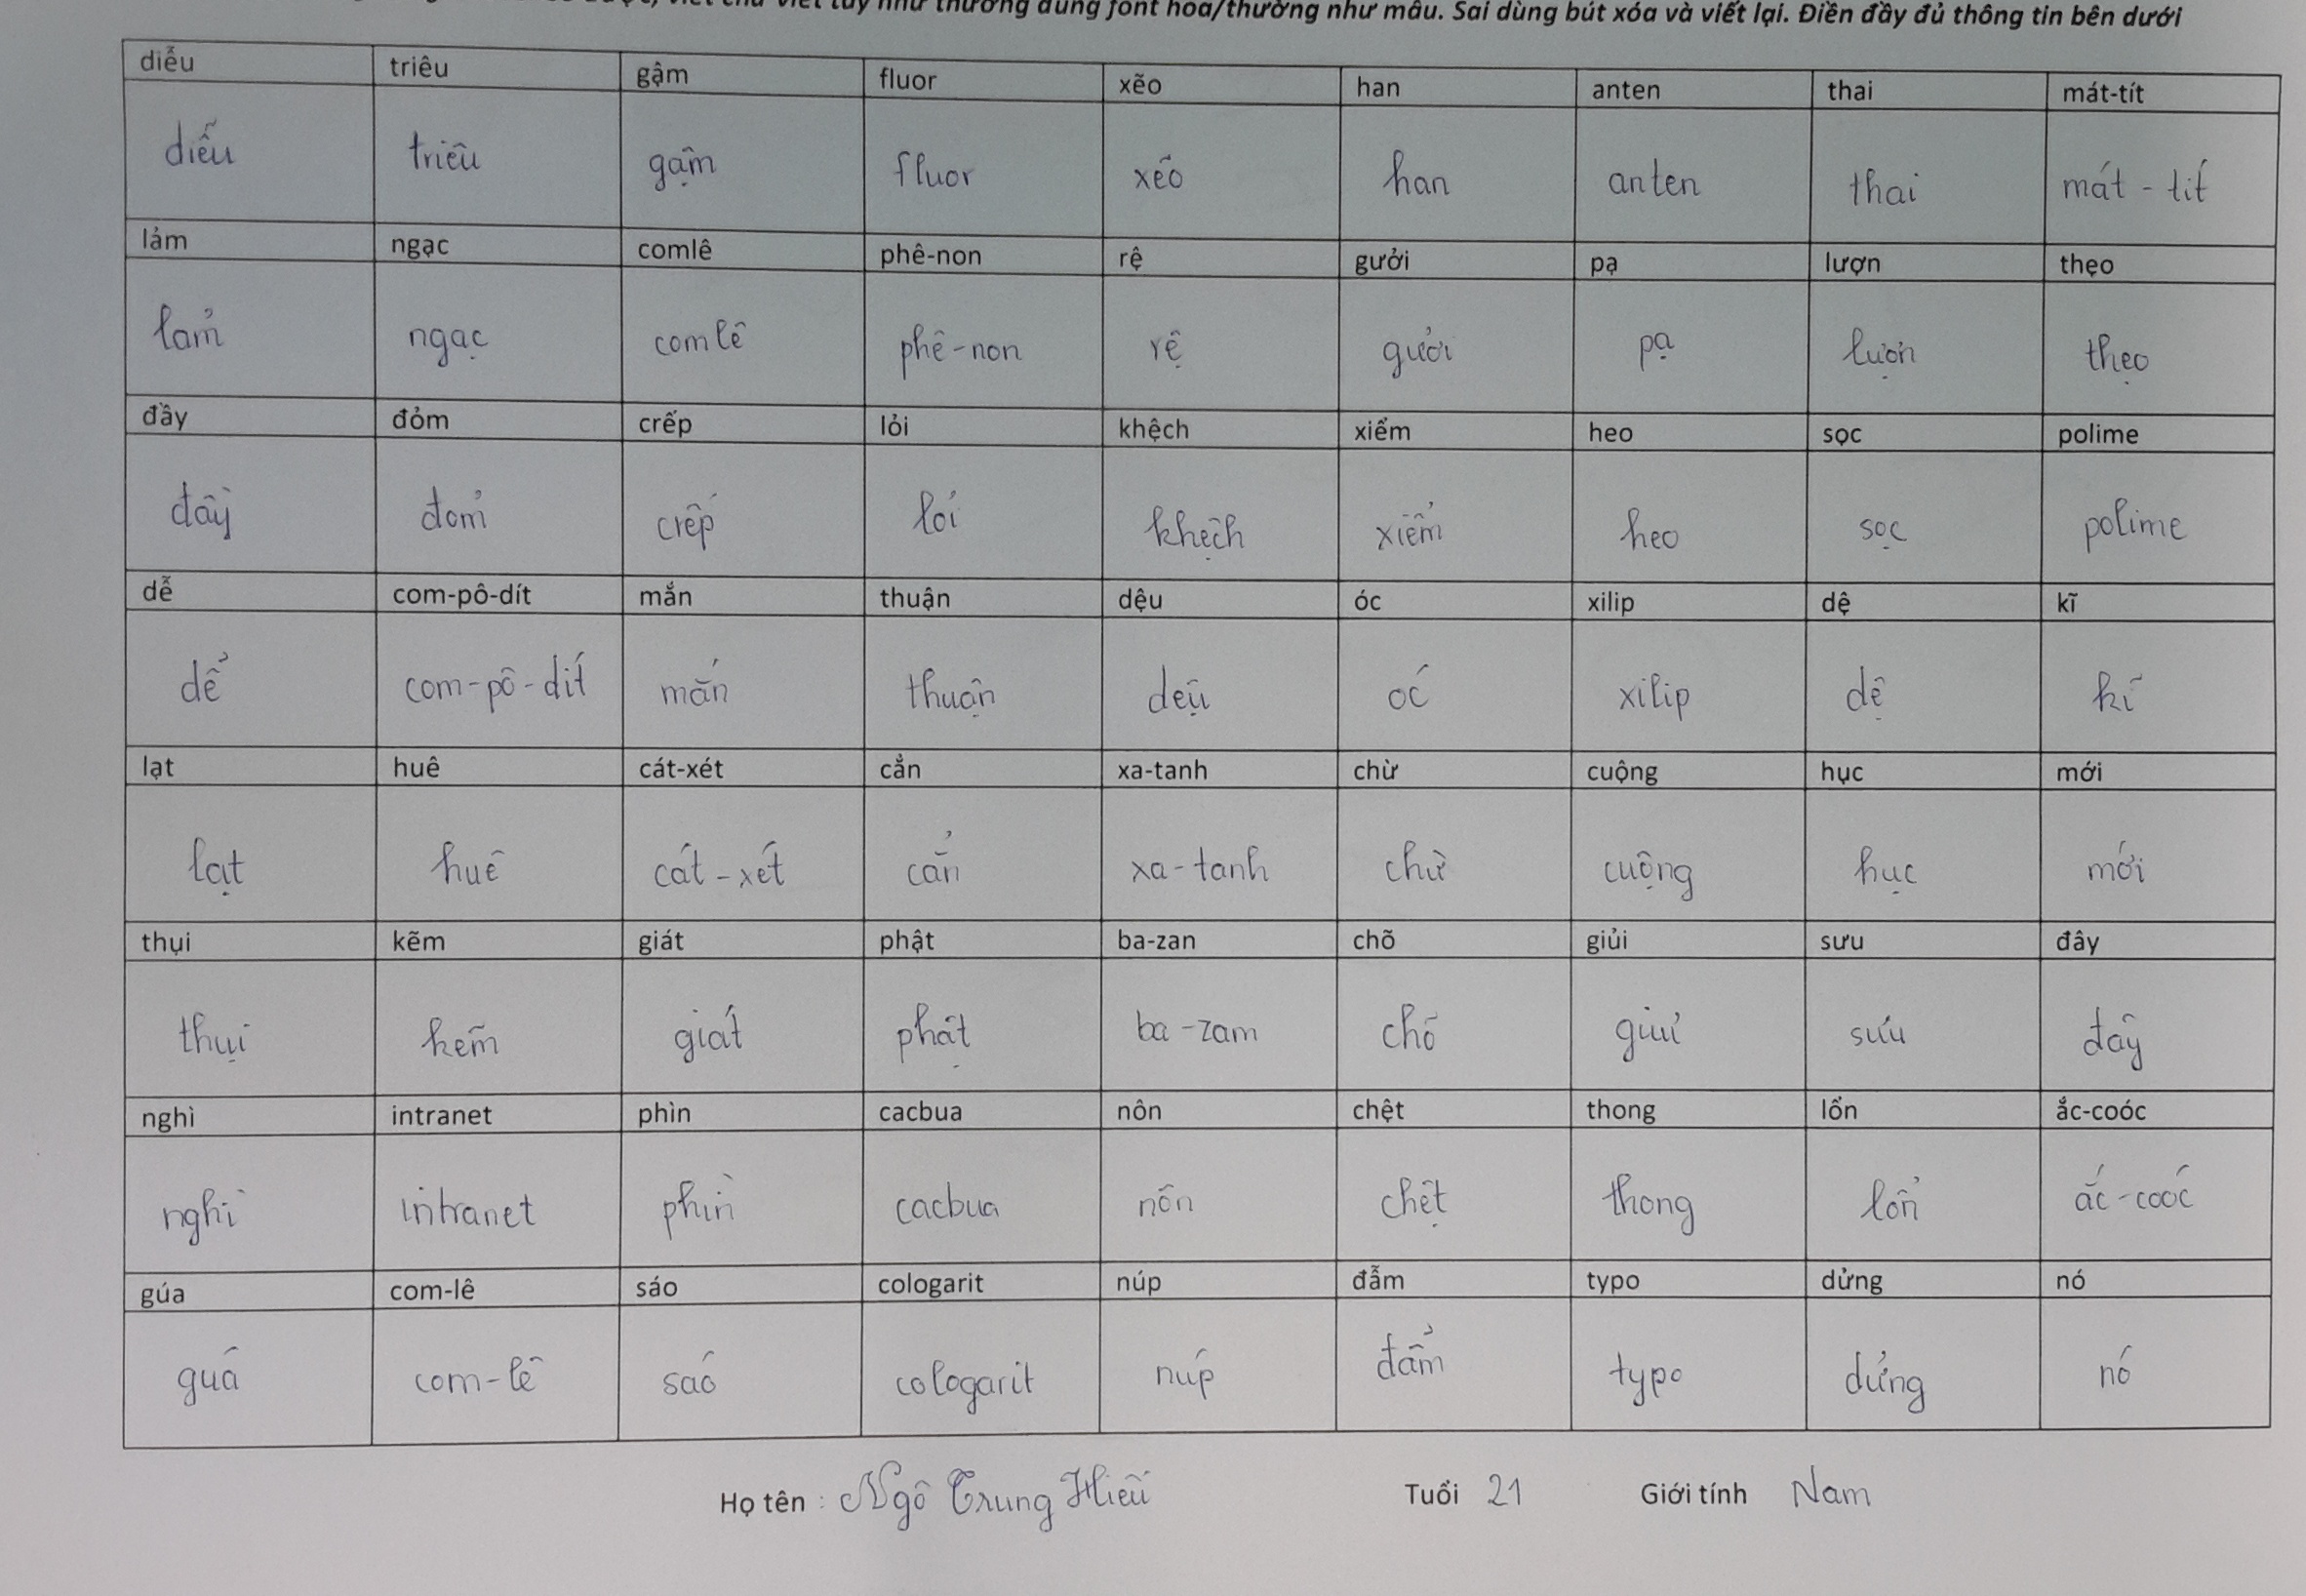 viết chữ viết tay như thường dùng font hoa/thường như mẫu. Sai dùng bút xóa và viết lại. Điền đầy đủ thông tin bên dưới
diễu triêu gậm fluor xẽo han anten thai mát-tít
diễu triêu gậm fluor xẽo han anten thai mát - tít
lảm ngạc comlê phê-non rệ gưởi pạ lượn thẹo
lảm ngạc comlê phê-non rệ gưởi pạ lượn thẹo
đầy đỏm crếp lỏi khệch xiểm heo sọc polime
đầy đỏm crếp lỏi khệch xiểm heo sọc polime
dễ com-pô-dít mắn thuận dệu óc xilip dệ kĩ
dể com-pô-dít mắn thuận dệu óc xilip dệ kĩ
lạt huê cát-xét cẳn xa-tanh chừ cuộng hục mới
lạt huê cát-xét cẳn xa-tanh chừ cuộng hục mới
thụi kẽm giát phật ba-zan chõ giủi sưu đây
thụi kẽm giát phật ba-zam chõ giủi sưu đây
nghì intranet phìn cacbua nôn chệt thong lổn ắc-coóc
nghì intranet phìn cacbua nôn chệt thong lổn ắc-coóc
gúa com-lê sáo cologarit núp đẫm typo dửng nó
guá com-lê sáo cologarit núp đẩm typo dửng nó
Họ tên : Ngô Trung Hiếu Tuổi 21 Giới tính Nam